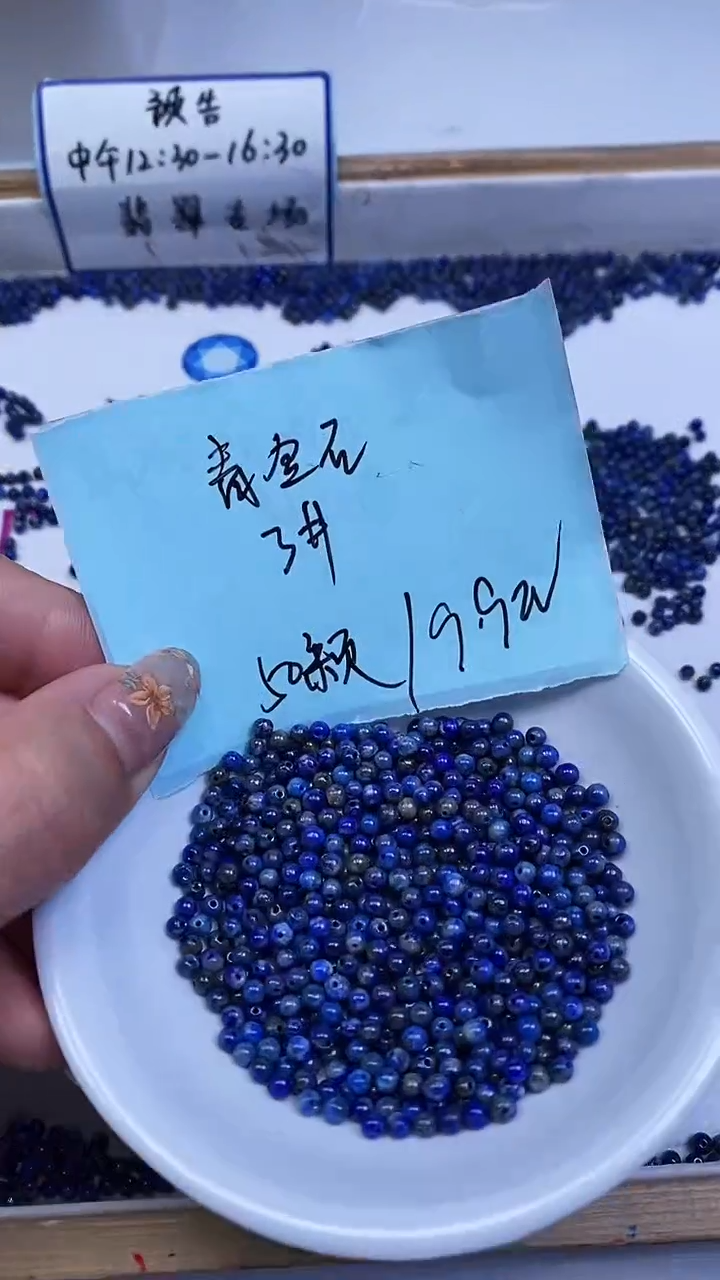 预告
中午12:30-16:30
翡翠专场
青金石
3#
50颗/19.9元